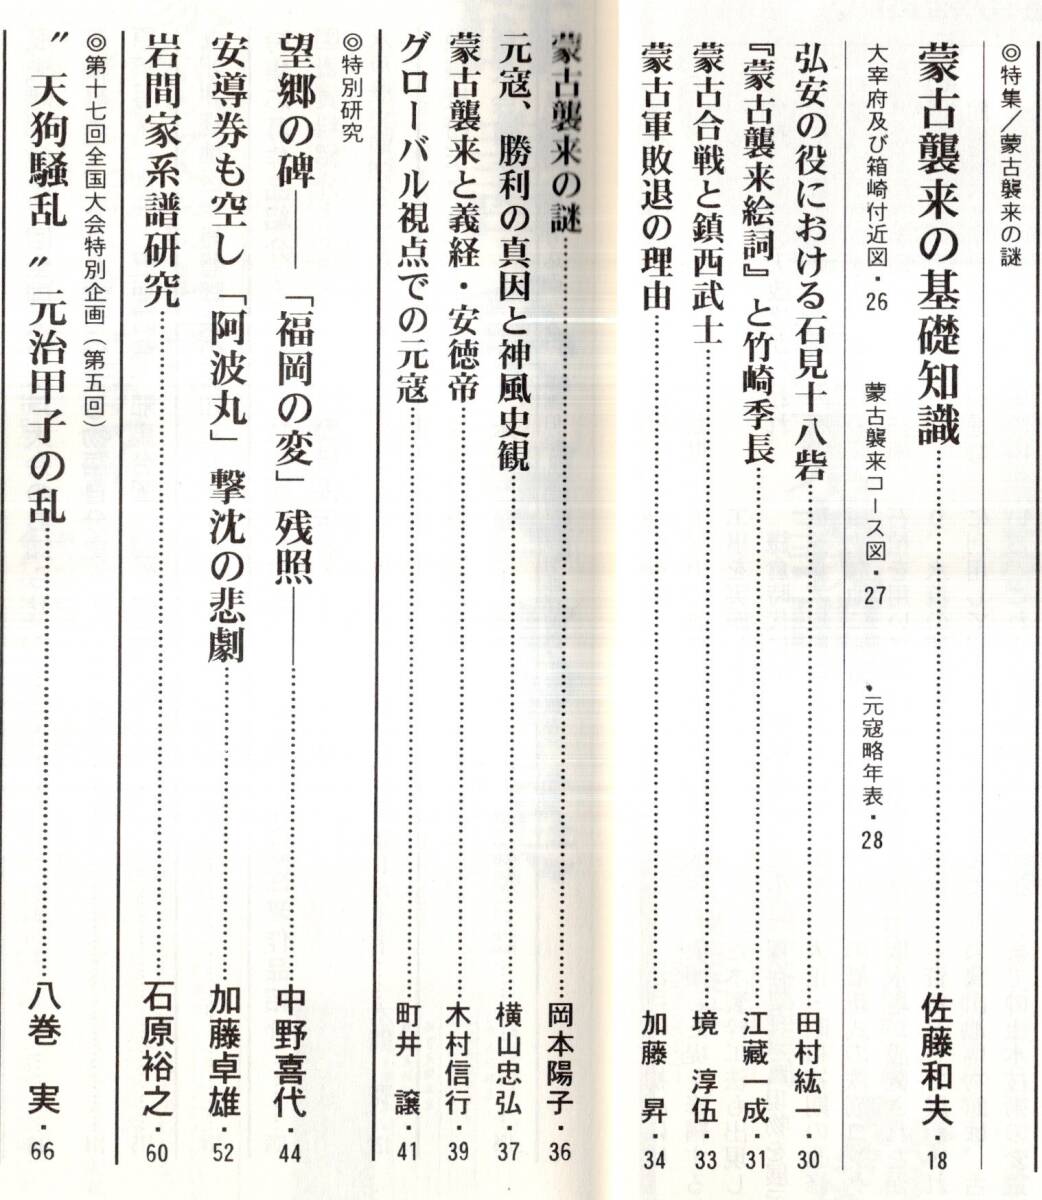 ◎特集／蒙古襲来の謎
蒙古襲来の基礎知識……佐藤和夫・18
大宰府及び箱崎付近図・26　蒙古襲来コース図・27　元寇略年表・28
弘安の役における石見十八砦……田村紘一・30
『蒙古襲来絵詞』と竹崎季長……江藏一成・31
蒙古合戦と鎮西武士……境　淳伍・33
蒙古軍敗退の理由……加藤　昇・34
蒙古襲来の謎……岡本陽子・36
元寇、勝利の真因と神風史観……横山忠弘・37
蒙古襲来と義経・安徳帝……木村信行・39
グローバル視点での元寇……町井　譲・41
◎特別研究
望郷の碑――「福岡の変」残照――……中野喜代・44
安導券も空し「阿波丸」撃沈の悲劇……加藤卓雄・52
岩間家系譜研究……石原裕之・60
◎第十七回全国大会特別企画（第五回）
〝天狗騒乱〟元治甲子の乱……八巻　実・66